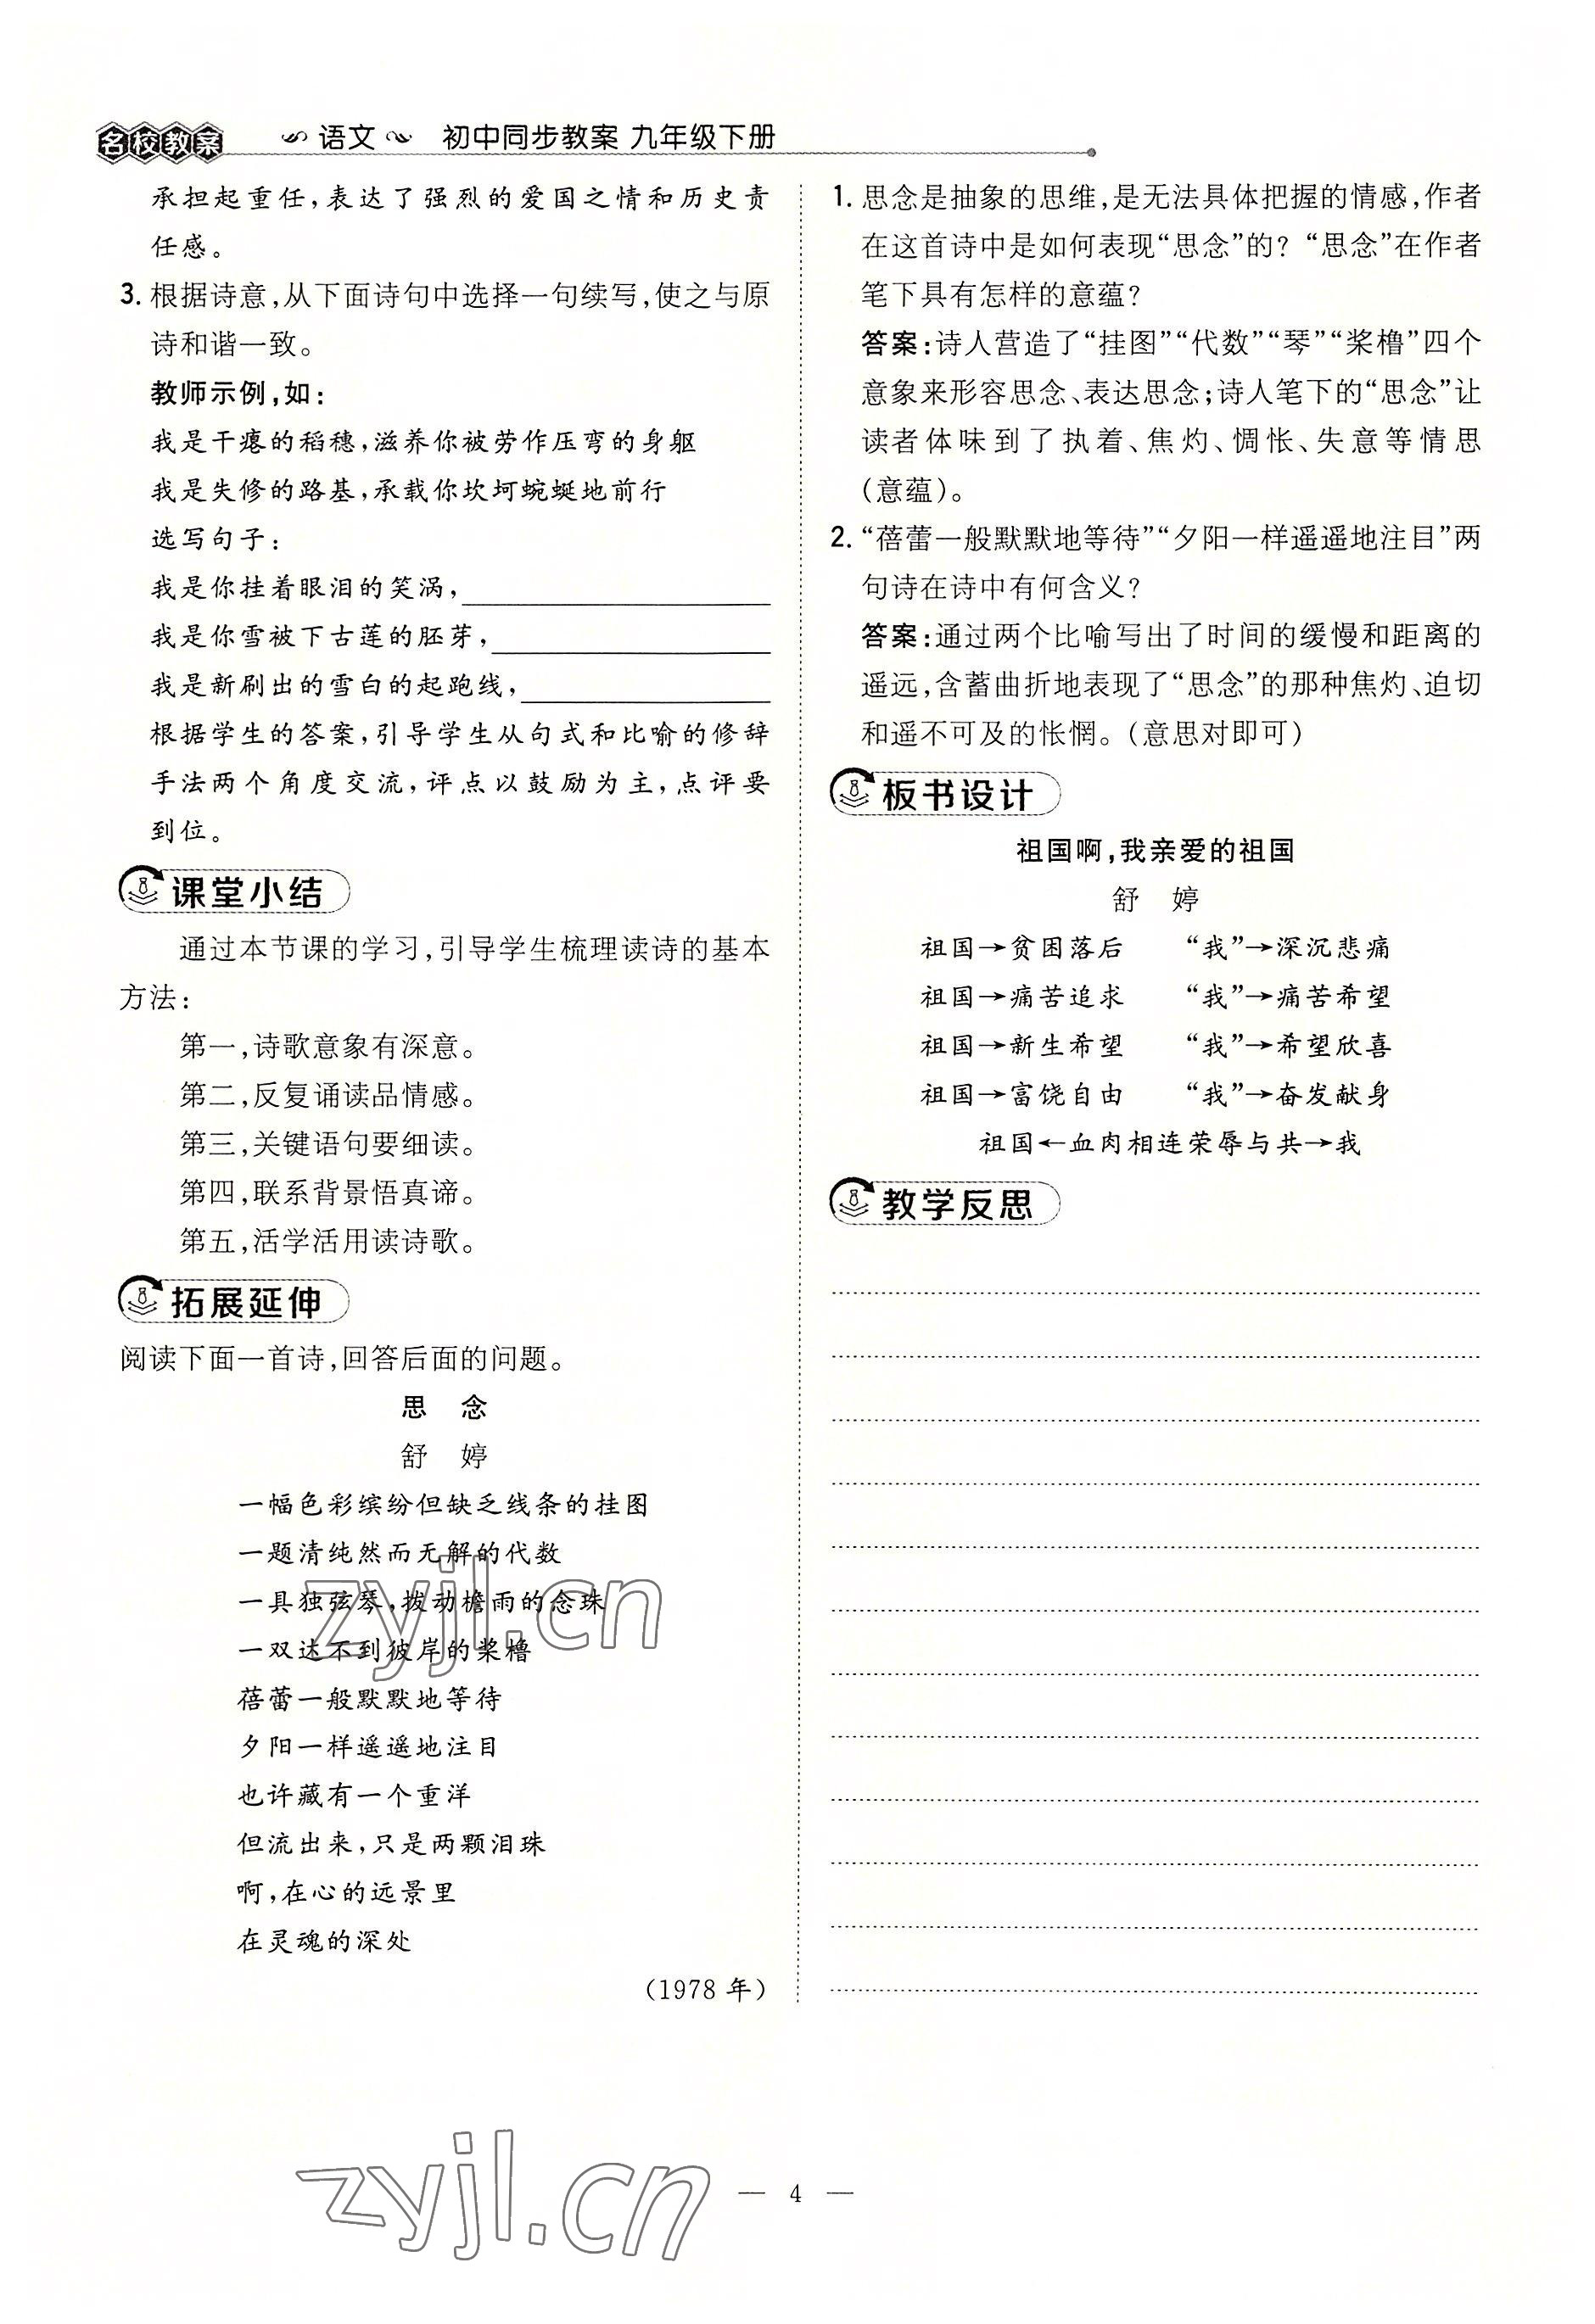 名校教案 语文 初中同步教案 九年级下册
承担起重任,表达了强烈的爱国之情和历史责
任感。
3. 根据诗意,从下面诗句中选择一句续写,使之与原
诗和谐一致。
教师示例,如:
我是干瘪的稻穗,滋养你被劳作压弯的身躯
我是失修的路基,承载你坎坷蜿蜒地前行
选写句子:
我是你挂着眼泪的笑涡,
我是你雪被下古莲的胚芽,
我是新刷出的雪白的起跑线,
根据学生的答案,引导学生从句式和比喻的修辞
手法两个角度交流,评点以鼓励为主,点评要
到位。
课堂小结
通过本节课的学习,引导学生梳理读诗的基本
方法:
第一,诗歌意象有深意。
第二,反复诵读品情感。
第三,关键语句要细读。
第四,联系背景悟真谛。
第五,活学活用读诗歌。
拓展延伸
阅读下面一首诗,回答后面的问题。
思 念
舒 婷
一幅色彩缤纷但缺乏线条的挂图
一题清纯然而无解的代数
一具独弦琴,拨动檐雨的念珠
一双达不到彼岸的桨橹
蓓蕾一般默默地等待
夕阳一样遥遥地注目
也许藏有一个重洋
但流出来,只是两颗泪珠
啊,在心的远景里
在灵魂的深处
(1978 年)
1. 思念是抽象的思维,是无法具体把握的情感,作者
在这首诗中是如何表现“思念”的?“思念”在作者
笔下具有怎样的意蕴?
答案:诗人营造了“挂图”“代数”“琴”“桨橹”四个
意象来形容思念、表达思念;诗人笔下的“思念”让
读者体味到了执着、焦灼、惆怅、失意等情思
(意蕴)。
2. “蓓蕾一般默默地等待”“夕阳一样遥遥地注目”两
句诗在诗中有何含义?
答案:通过两个比喻写出了时间的缓慢和距离的
遥远,含蓄曲折地表现了“思念”的那种焦灼、迫切
和遥不可及的怅惘。(意思对即可)
板书设计
祖国啊,我亲爱的祖国
舒 婷
祖国→贫困落后 “我”→深沉悲痛
祖国→痛苦追求 “我”→痛苦希望
祖国→新生希望 “我”→希望欣喜
祖国→富饶自由 “我”→奋发献身
祖国←血肉相连荣辱与共→我
教学反思
zyjl.cn
zyjl.cn
— 4 —